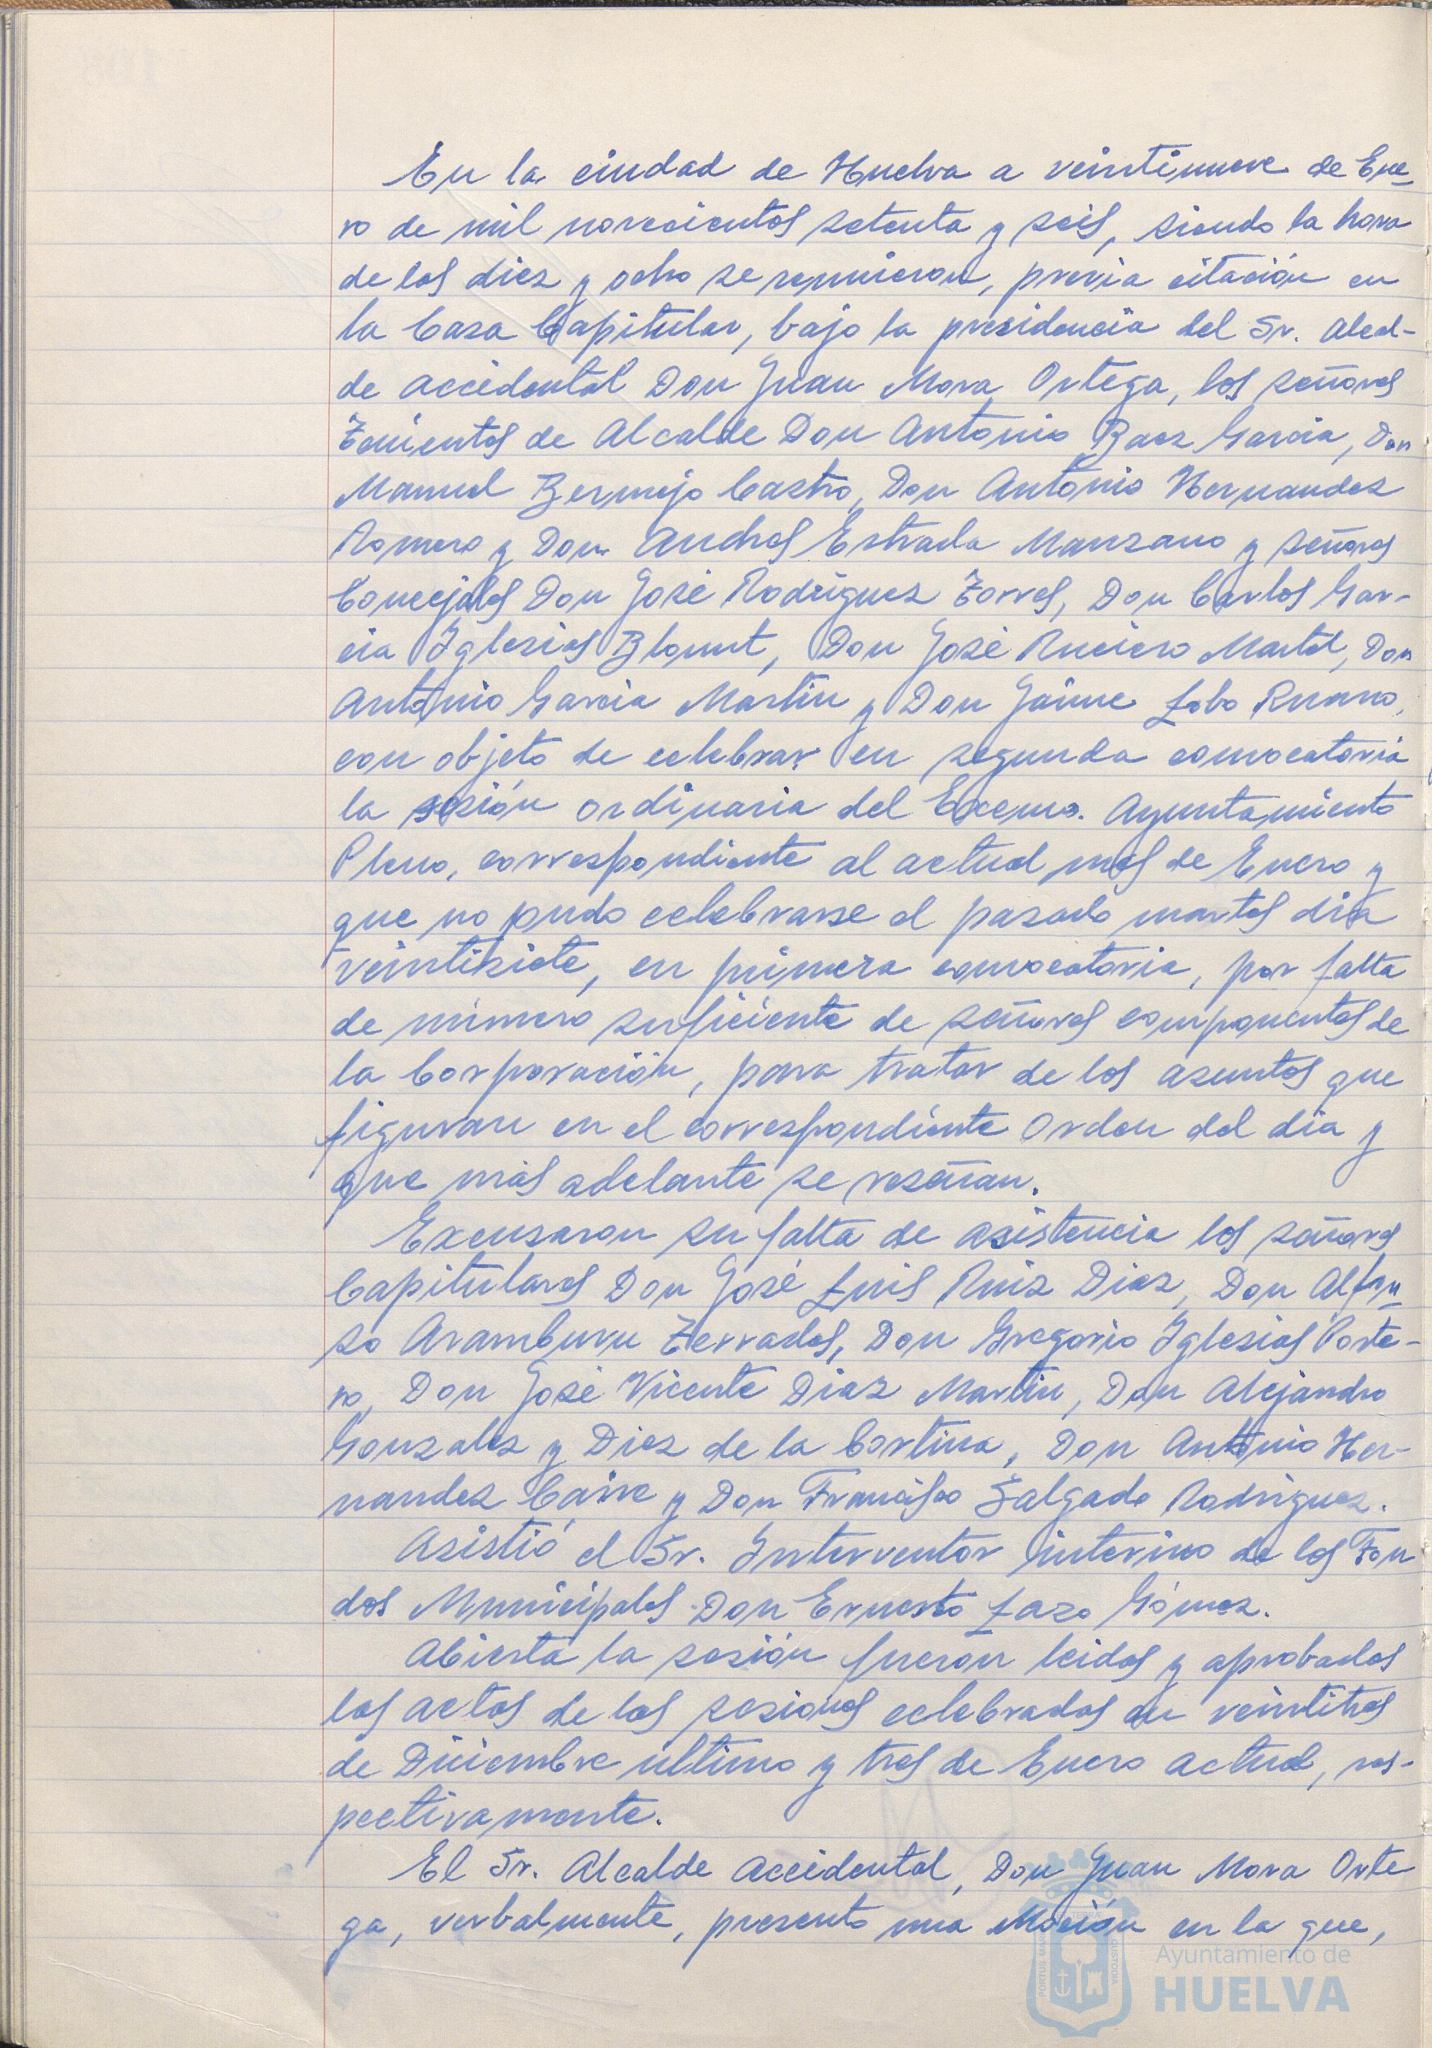 En la ciudad de Huelva a veintinueve de Ene-
ro de mil novecientos setenta y seis, siendo la hora
de las diez y ocho se reunieron, previa citación en
la Casa Capitular, bajo la presidencia del Sr. Alcal-
de accidental Don Juan Mora Ortega, los señores
Tenientes de Alcalde Don Antonio Baez Garcia, Don
Manuel Bermejo Castro, Don Antonio Hernandez
Romero y Don Andres Estrada Manzano y señores
Concejales Don José Rodriguez Torres, Don Carlos Gar-
cia Iglesias Blount, Don José Ruciero Martel, Don
Antonio Garcia Martin y Don Jaime Lobo Ruano,
con objeto de celebrar en segunda convocatoria
la sesión ordinaria del Excmo. Ayuntamiento
Pleno, correspondiente al actual mes de Enero y
que no pudo celebrarse el pasado martes dia
veintisiete, en primera convocatoria, por falta
de número suficiente de señores componentes de
la Corporación, para tratar de los asuntos que
figuran en el correspondiente Orden del dia y
que más adelante se reseñan.
Excusaron su falta de asistencia los señores
Capitulares Don José Luis Ruiz Diaz, Don Alfon-
so Aramburu Terrades, Don Gregorio Iglesias Porte-
ro, Don José Vicente Diaz Martin, Don Alejandro
Gonzalez y Diez de la Cortina, Don Antonio Her-
nandez Caire y Don Francisco Salgado Rodriguez.
Asistió el Sr. Interventor interino de los Fon
dos Municipales Don Ernesto Lazo Gómez.
Abierta la sesión fueron leidas y aprobadas
las actas de las sesiones celebradas en veintitres
de Diciembre ultimo y tres de Enero actual, res-
pectivamente.
El Sr. Alcalde accidental, Don Juan Mora Orte
ga, verbalmente, presento una Moción en la que,
Ayuntamiento de
HUELVA